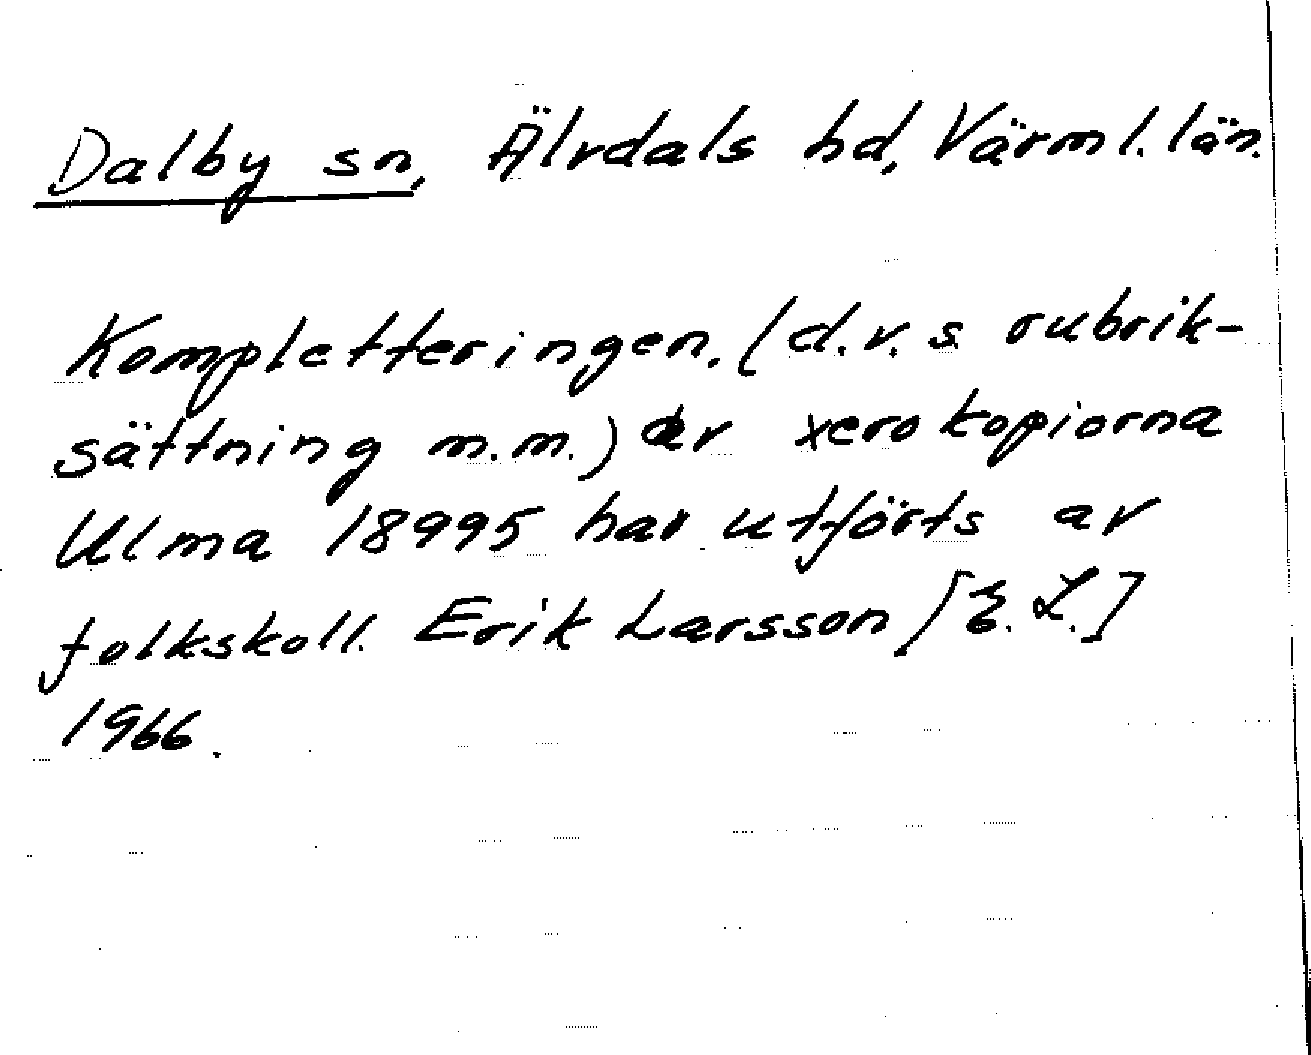 Dalby sn, Älvdals hd, Värml. län.
Kompletteringen. (d.v.s. rubrik-
sättning m.m.) av xerokopiorna
Ulma 18995 har utförts av
folkskoll. Erik Larsson [E.L.]
1966.